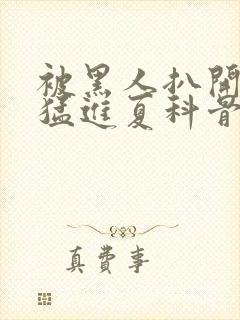 被黑人扒開
猛進夏科普
真費事